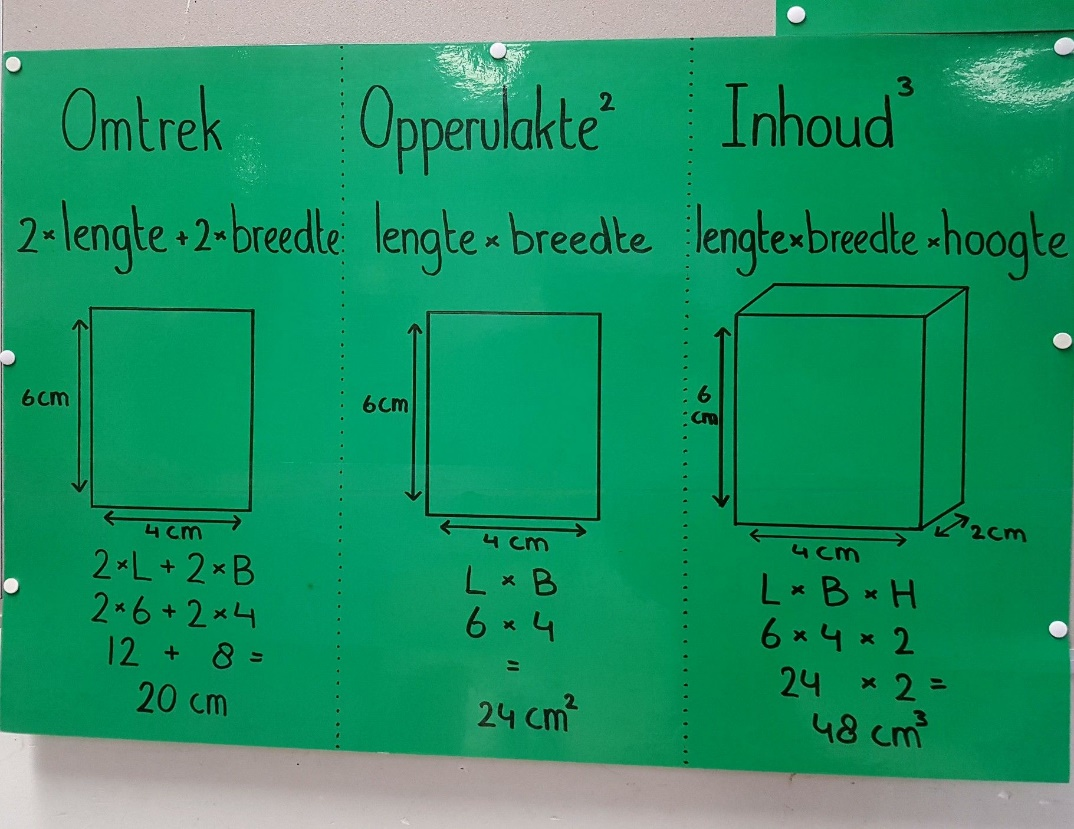 Omtrek
2×lengte + 2×breedte
6cm
4cm
2×L + 2×B
2×6 + 2×4
12 + 8 =
20 cm
Oppervlakte²
lengte × breedte
6cm
4cm
L × B
6 × 4
=
24 cm²
Inhoud³
lengte×breedte×hoogte
6
cm
4cm
2cm
L × B × H
6 × 4 × 2
24 × 2 =
48 cm³